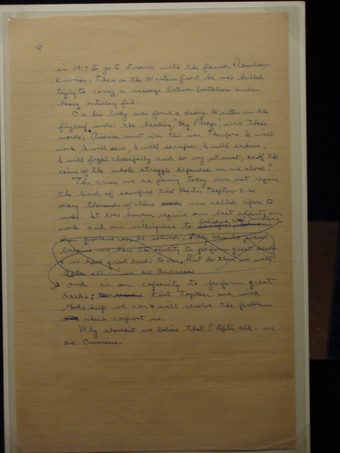 8
in 1917 to go to France with the famed Rainbow
Division. There on the Western front he was killed
trying to carry a message between battalions under
heavy artillery fire.
On his body was found a diary. Written on the
flyleaf under the heading, "My Pledge," were these
words, "America must win this war. Therefore I will
work, I will save, I will sacrifice, I will endure,
I will fight cheerfully and do my utmost, as if the
issue of the whole struggle depended on me alone."
The crisis we are facing today does not require
the kind of sacrifice that Martin Treptow & so
many thousands of others were called upon to
make. It does however require our best effort, our
work and our willingness to believe in ourselves
great deeds
& we have great deeds to do. But do them we
After all we are Americans
and in our capacity to perform great
deeds; that together and with
Gods help we can & will resolve the problems
which confront us.
Why shouldn't we believe that? After all - we
are Americans.